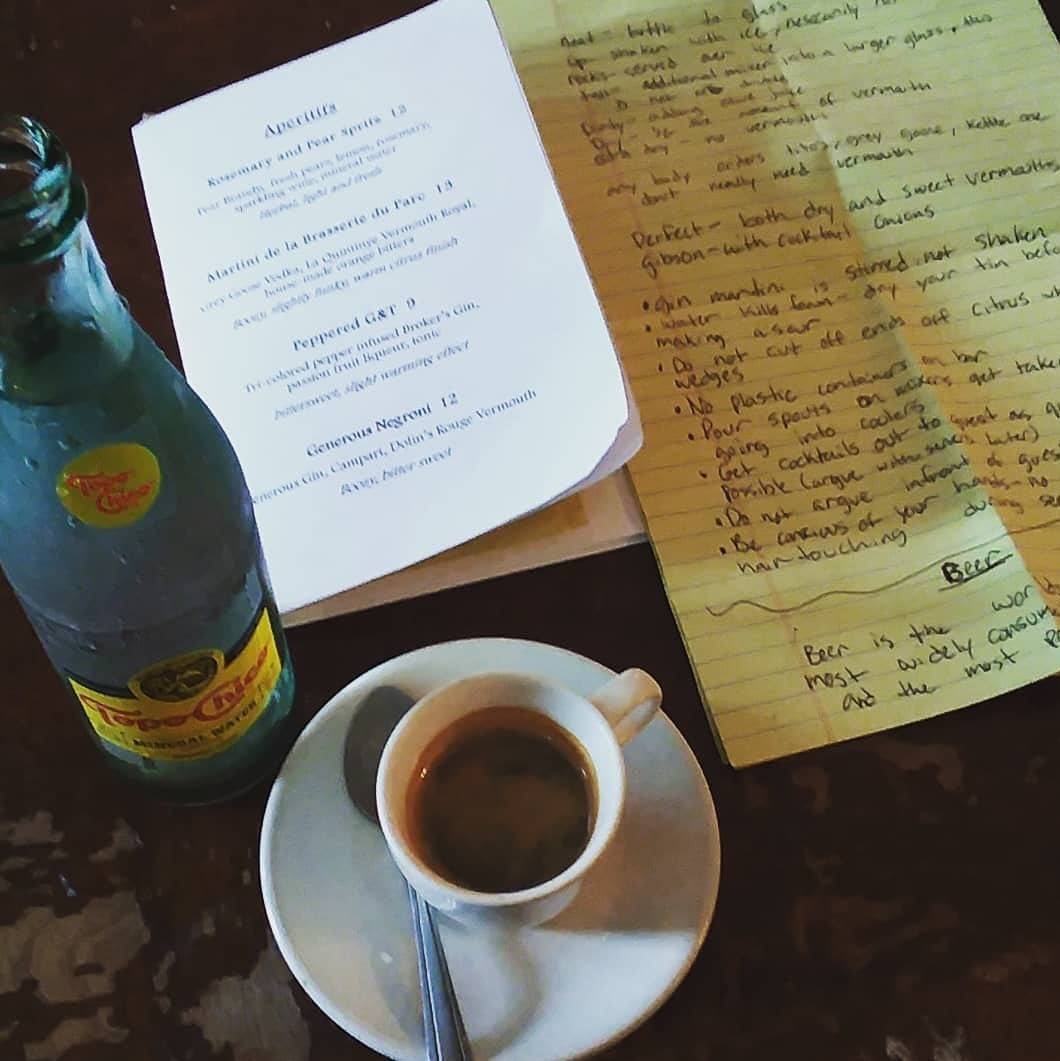 Aperitifs
Rosemary and Pear Spritz 12
Pear Brandy, fresh pears, lemon, rosemary,
sparkling wine, mineral water
Herbal, light and fresh
Martini de la Brasserie du Parc 13
Grey Goose Vodka, La Quintinye Vermouth Royal,
house-made orange bitters
Boozy, slightly funky, warm citrus finish
Peppered G&T 9
Tri-colored pepper infused Broker's Gin,
passion fruit liqueur, tonic
bittersweet, slight warming effect
Generous Negroni 12
Generous Gin, Campari, Dolin's Rouge Vermouth
Boozy, bitter sweet
Topo
Chico
Topo Chico
MINERAL WATER
neat - bottle to glass
up - shaken with ice,
rocks - served over ice
additional mixer into a larger glass, this
Dirty - adding olive juice
Dry - amount of vermouth
extra dry - no vermouth
any body orders titos, grey goose, Kettle one
don't really need vermouth
Perfect - both dry and sweet vermouths
gibson - with cocktail onions
• gin martini is stirred not shaken
• water kills foam - dry your tin befo
making a sour
• Do not cut off ends off citrus wh
wedges
• No plastic containers on bar
• Pour spouts on mixers get taken
going into coolers
• Get cocktails out to guest as
possible (argue w/ server later)
• Do not argue infront of gues
• Be concious of your hands - no
hair touching during se
Beer
Beer is the wor
most widely consum
and the most